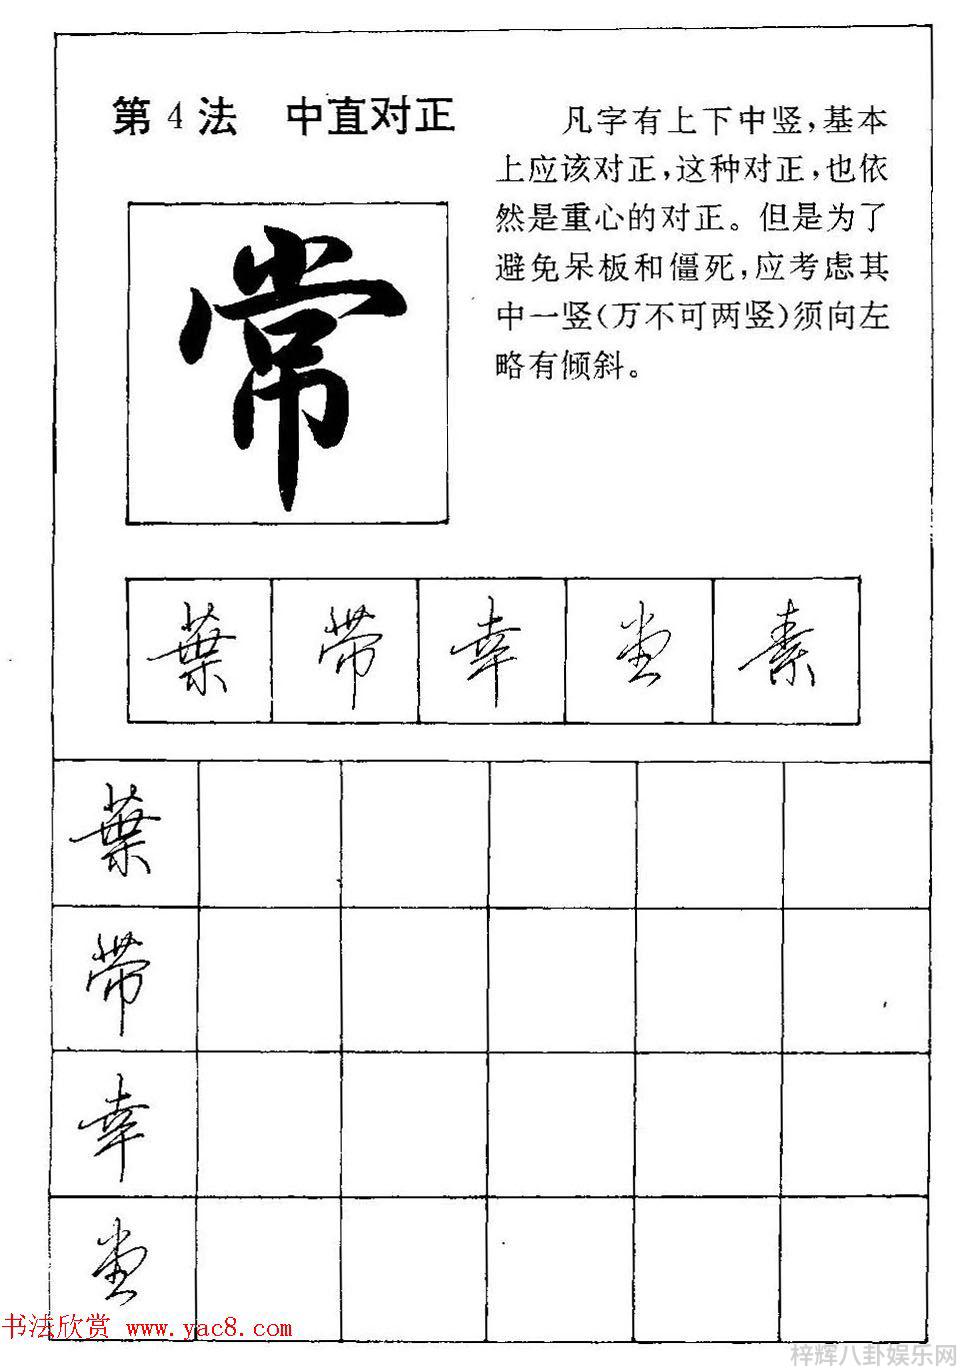 第4法 中直对正
凡字有上下中竖,基本
上应该对正,这种对正,也依
然是重心的对正。但是为了
避免呆板和僵死,应考虑其
中一竖(万不可两竖)须向左
略有倾斜。
常
葉 带 幸 堂 素
葉
带
幸
堂
书法欣赏 www.yac8.com
梓辉八卦娱乐网